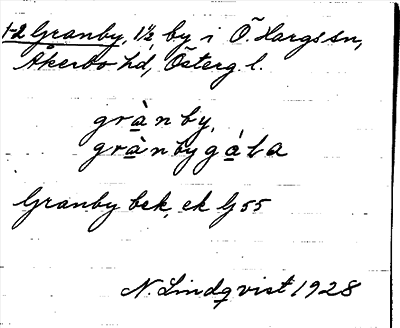 1-2 Granby, 1½, by i Ö. Hargs sn,
Åkerbo hd, Österg. l.
grànby,
grànbygáta
Granby bek, ek G 55
N. Lindqvist 1928